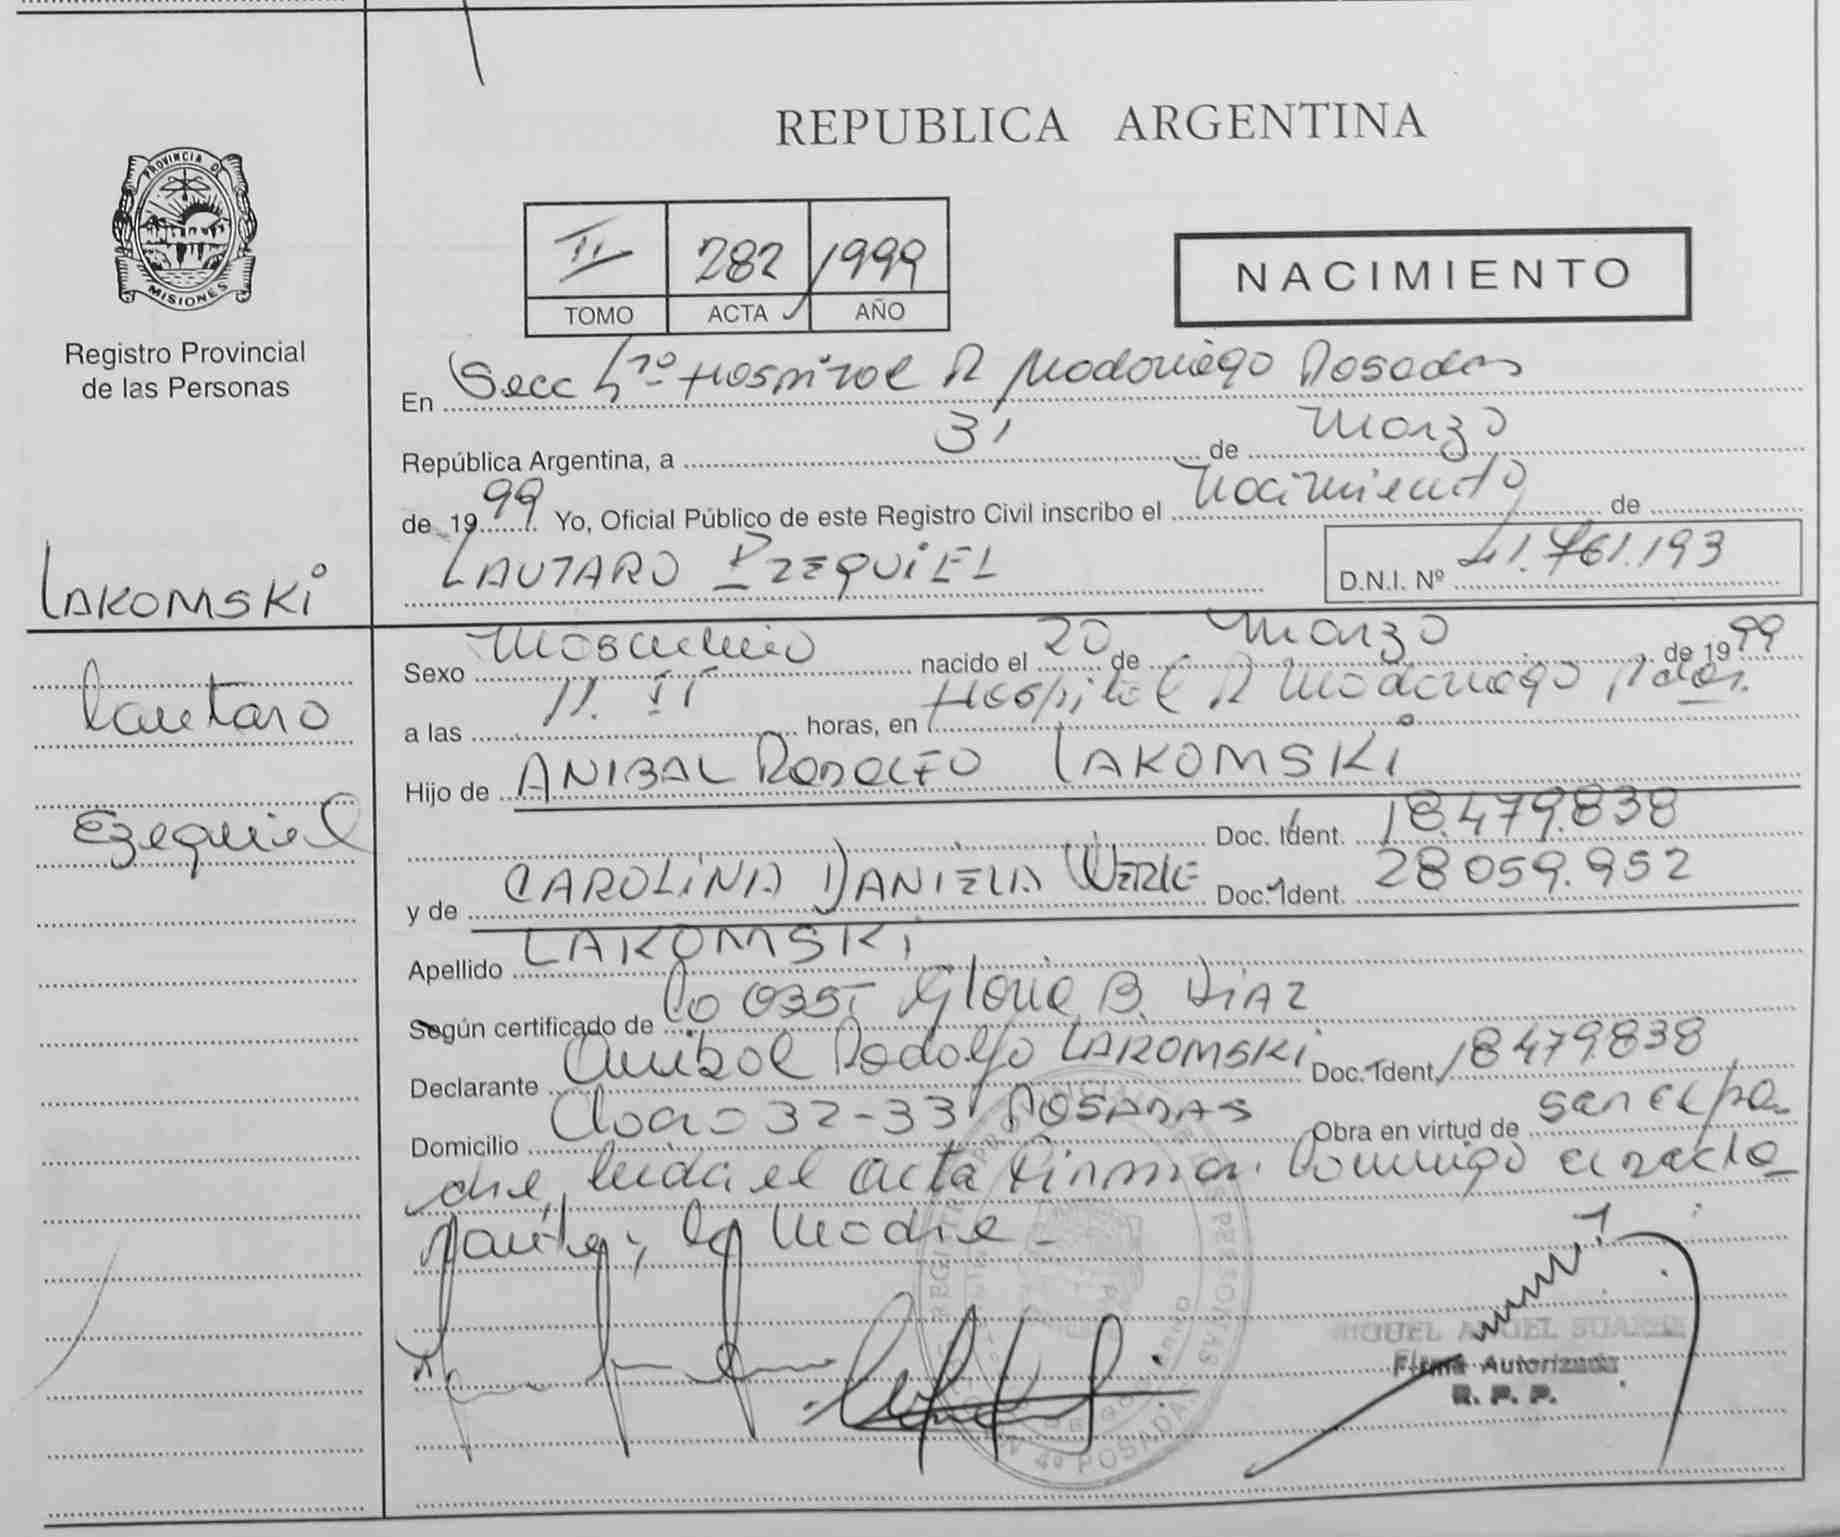 REPUBLICA ARGENTINA
PROVINCIA DE
MISIONES
Registro Provincial
de las Personas
II 282 1999
TOMO ACTA AÑO
NACIMIENTO
En Secc 4ta Hospital R Madariaga Posadas
República Argentina, a 31 de Marzo
de 1999 Yo, Oficial Público de este Registro Civil inscribo el Nacimiento de
LAUTARO EZEQUIEL
D.N.I. Nº 41.761.193
LAKOMSKI
Lautaro
Ezequiel
Sexo Masculino nacido el 20 de Marzo de 1999
a las 11. horas, en Hospital R Madariaga Pdas.
Hijo de ANIBAL RODOLFO LAKOMSKI
Doc. Ident. 18.479.838
y de CAROLINA DANIELA WERLE Doc. Ident. 28059.952
Apellido LAKOMSKI
Según certificado de Gloria B. DIAZ
Declarante Anibal Rodolfo LAKOMSKI Doc. Ident. 18479838
Domicilio 32-33 POSADAS Obra en virtud de ser el pa-
dre, leida el acta firman. Domingo
la Madre -
MIGUEL ANGEL SUAREZ
Firma Autorizada
R. P. P.
4º POSADAS